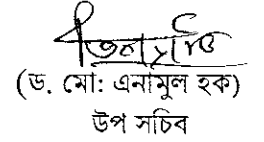 (ড. মো: এনামুল হক)
উপ সচিব